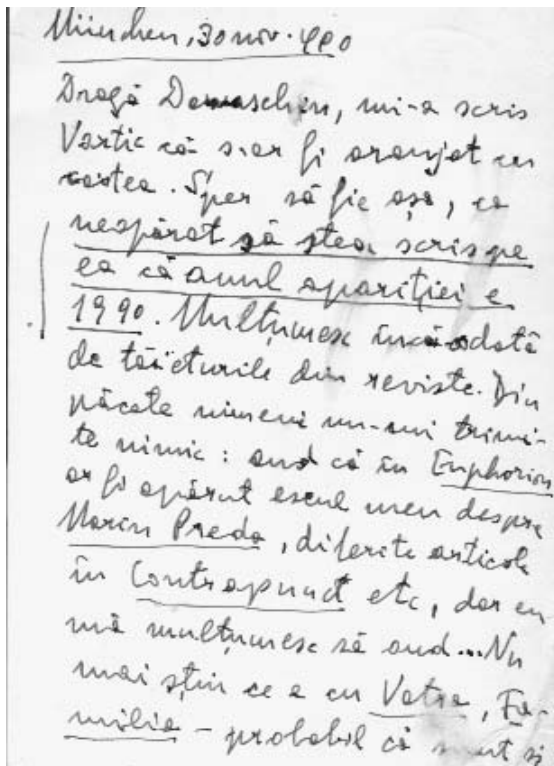 München, 30 nov. 990
Dragă Damaschin, mi-a scris
Vartic că s-ar fi aranjat cu
cartea. Sper să fie așa, ca
neapărat să stea scris pe
ea că anul apariției e
1990. Mulțumesc încă odată
de tăieturile din reviste. Din
păcate nimeni nu-mi trimi-
te nimic: aud că în Euphorion
ar fi apărut eseul meu despre
Marin Preda, diferite articole
în Contrapunct etc, dar eu
mă mulțumesc să aud... Nu
mai știu ce e cu Vatra, Fa-
milia – probabil că sunt și